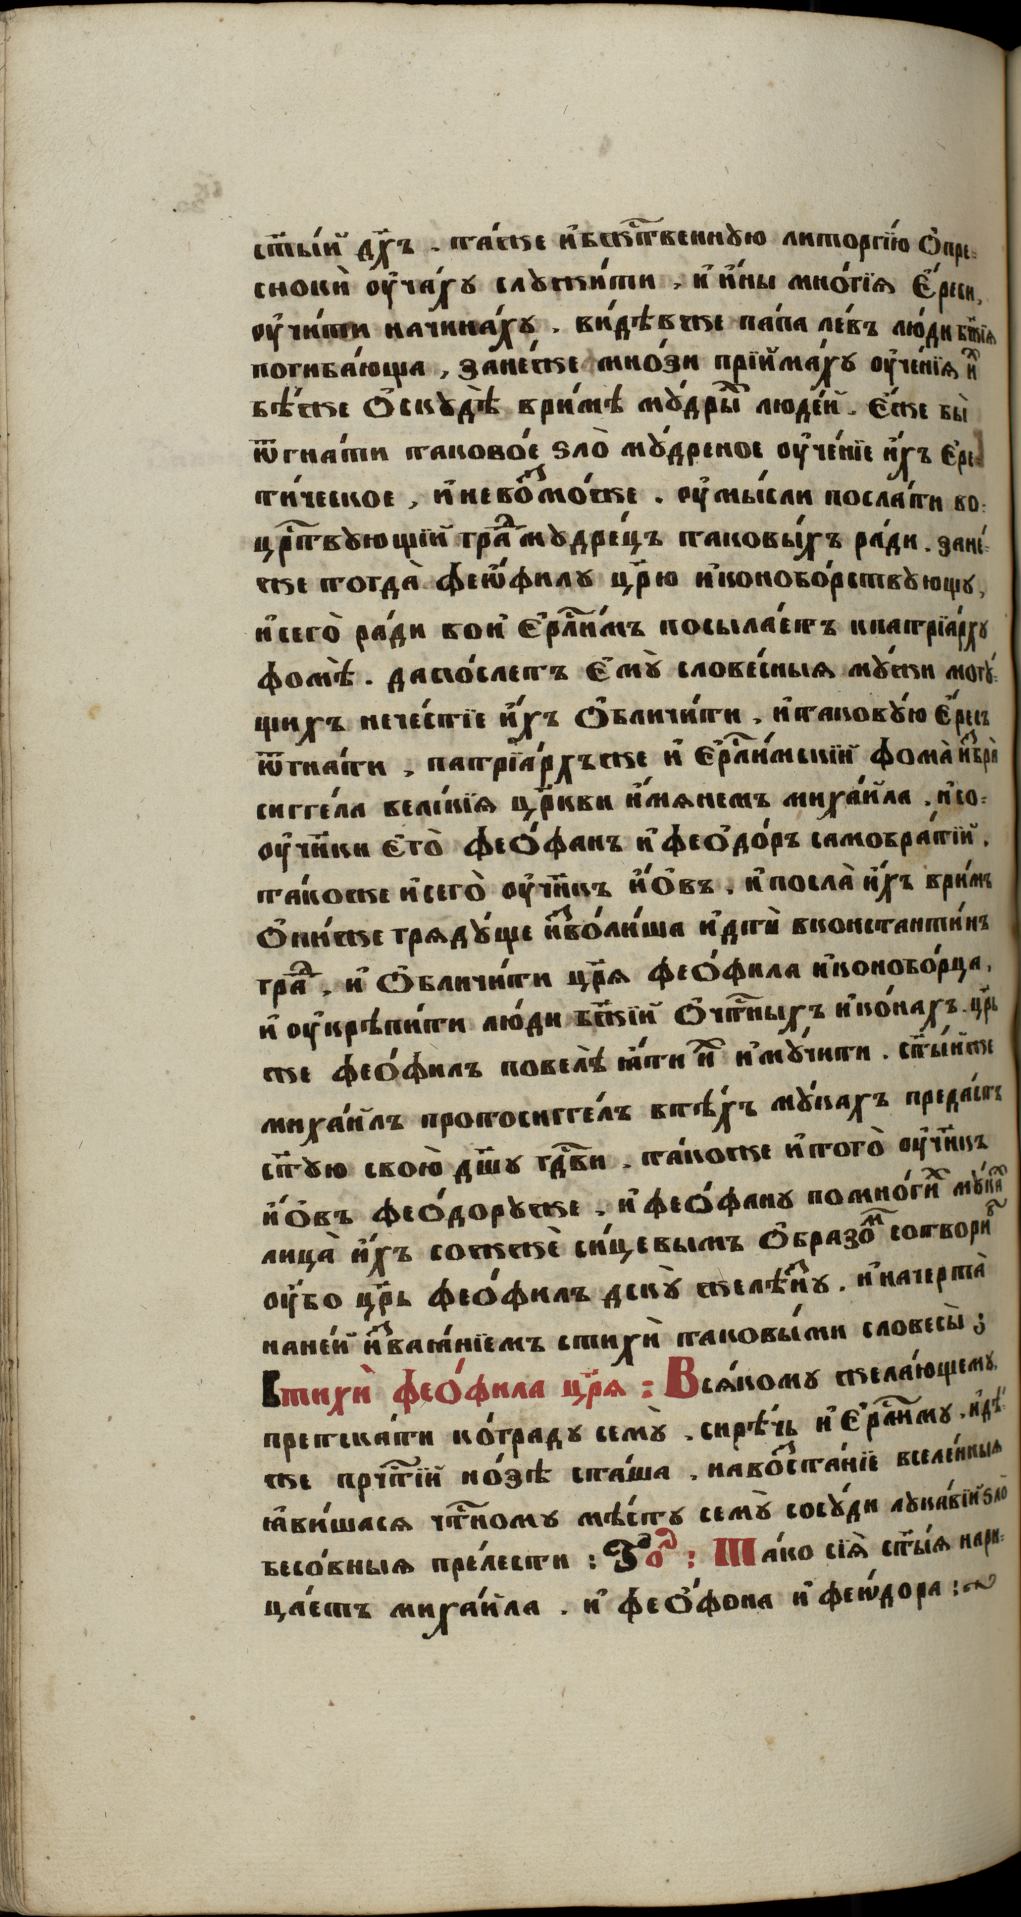 ст҃ы́й дх҃ъ . та́же и҆бж҃твенную литоргі́ю ѻ҆пре-
сноки̏ оу҆ча́ху служи́ти , и҆ и҆́ны мно́гїя є҆́реси,
оу҆чи́ти начина́ху . ви́дѣвъже па́па ле́въ лю́ди бж҃їя
погиба́юща , зане́же мно́зи прїйма́ху оу҆че́нїя и҆х
бѣ́же ѻ҆ску́дѣ ври́мѣ му́дрых люде́й . є҆́же бы̀
ѿгна́ти таково́е ѕло̀ му́дреное оу҆че́нїе и҆́хъ є҆ре-
ти́ческое , и҆невозмо́же . оу҆мы́сли посла́ти во-
црⷭ҇твующїй гра́д мудре́цъ таковы́хъ ра́ди . зане́-
же тогда̀ феѡ́филу цр҃ю и҆коноборствующу,
и҆сего̀ ра́ди вои҆ є҆рⷭ҇ли́мъ посыла́етъ кпатрїа́рху
фомѣ̀ . дапо́слетъ є҆му̀ слове́сныя му́жи могу́-
щихъ нече́стїе и҆́хъ ѻ҆бличи́ти , и҆такову́ю є҆́ресь
ѿгна́ти , патрїа́рхъже и҆ є҆рⷭ҇ли́мьскїй фома̀ и҆збра̀
сигге́ла вели́кїя цр҃кви и҆́мянемъ михаи́ла . и҆со-
оу҆чн҃ки є҆го̀ фео́фанъ и҆ фео́до́ръ самобра́тїй .
та́коже и҆сего̀ оу҆чн҃къ и҆́ѻвъ . и҆посла̀ и҆́хъ ври́мъ
ѻ҆ни́же гряду́ще и҆зво́лиша и҆дти̏ вконстанти́нъ
гра́д , и҆ ѻ҆бличи́ти цр҃я фео́фила и҆конобо́рца .
и҆ оу҆крѣпи́ти лю́ди бж҃їй ѻ҆чтⷭ҇ныхъ и҆ко́нахъ . цр҃ь
же фео́филъ повелѣ̀ ꙗ҆́ти и҆х и҆му́чити . ст҃ы́йже
михаи́лъ протосигге́лъ втѣ́хъ му́кахъ преда́стъ
ст҃ую свою̀ дш҃у гдⷭ҇ви . та́коже и҆того̀ оу҆чн҃къ
и҆́ѻвъ фео́доруже . и҆ фео́фану помно́гих му́ках
лица̀ и҆́хъ сожже̏ си́цевымъ ѻ҆́бразом сотвори́
оу҆́бо цр҃ь фео́филъ дску̀ желѣ́зну . и҆начерта̀
нане́й и҆звая́нїемъ стихи̏ таковы́ми словесы̏ ;
Стихи̏ фео́фила цр҃я : Вся́кому жела́ющему
претска́ти ко́граду сему̀ . сирѣ́чь и҆ є҆рⷭ҇ли́му . и҆дѣ́-
же пречⷭ҇тїй но́зѣ ста́ша . навозста́нїе вселе́нныя
ꙗ҆ви́шася чтⷭ҇ному мѣ́сту сему̀ сосу́ди лука́вїй ѕло
бесо́вныя пре́лести : Зо҃д : Та́ко сїя̀ ст҃ы́я нари-
ца́етъ михаи́ла . и҆ фео́фона и҆ феѡ́дора :~